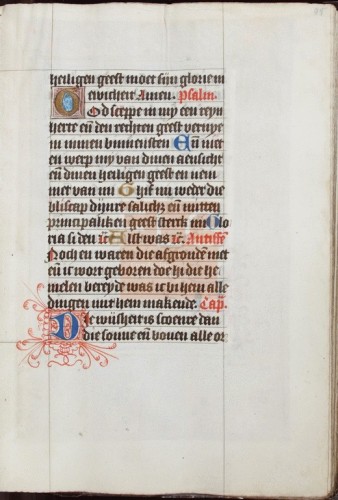 heiligen geest moet sijn glorie in
ewicheit Amen. Psalm.
God sceppe in my een reyn
herte eñ den rechten geest vernye
in minen binnensten Eñ niet
en werp my van dinen aensicht
eñ dinen heiligen geest en nem
niet van mi Ghif my wedr die
bliscap dijnre salich₃ eñ mitten
principaliken geest sterk mi Glo
ria si den r̄c Als̄t was r̄c. Antiffē
Noch en waren die afgronden niet
eñ ic wort geboren doe hi die he
melen bereyde was ic bi hem alle
dingen mit hem makende. Cap̄.
Die wijsheit is scoenre dan
die sonne eñ boven alle or